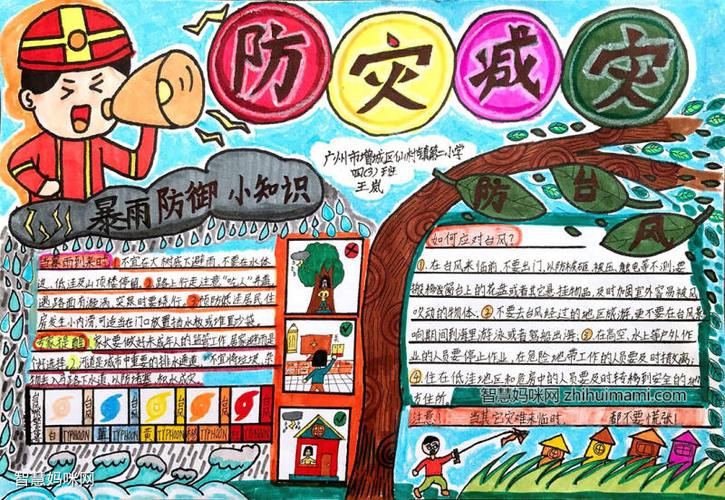 防灾减灾
广州市增城区仙村镇第一小学
四(3)班
王岚
暴雨防御小知识
当暴雨到来时 1.不宜在大树底下避雨,不要在水体
边、低洼及山顶楼停留。2.路上行走注意
过路面有漩涡,突然时要绕行。3.预防低洼居民住
房发生小内涝,可适当在门口放置挡水板或堆置沙袋
家长要做好未成年人的监管工作,居家避雨是
个好选择。2.河道是城市中重要的排水通道,不宜将垃圾、杂
物丢入马路下水道,以防堵塞,积水成灾。
台 TYPHOON 蓝 TYPHOON 黄 TYPHOON TYPHOON 红 TYPHOON
防台风
如何应对台风?
①.在台风来临前,不要出门,以防被砸、被压、触电等不测;要
搬移窗台上的花盆或者其它悬挂物品,及时加固室外容易被风
吹动的物体。②.不要去台风经过的地区旅游,更不要在台风影
响期间到海里游泳或者驾船出海;③.在高空、水上等户外作
业的人员要停止作业,在危险地带工作的人员要及时撤离;
④住在低洼地区和危房中的人员要及时转移到安全的地
方住所。
智慧妈咪网 zhihuimami.com
注意! 当其它灾难来临时, 都不要慌张!
智慧妈咪网